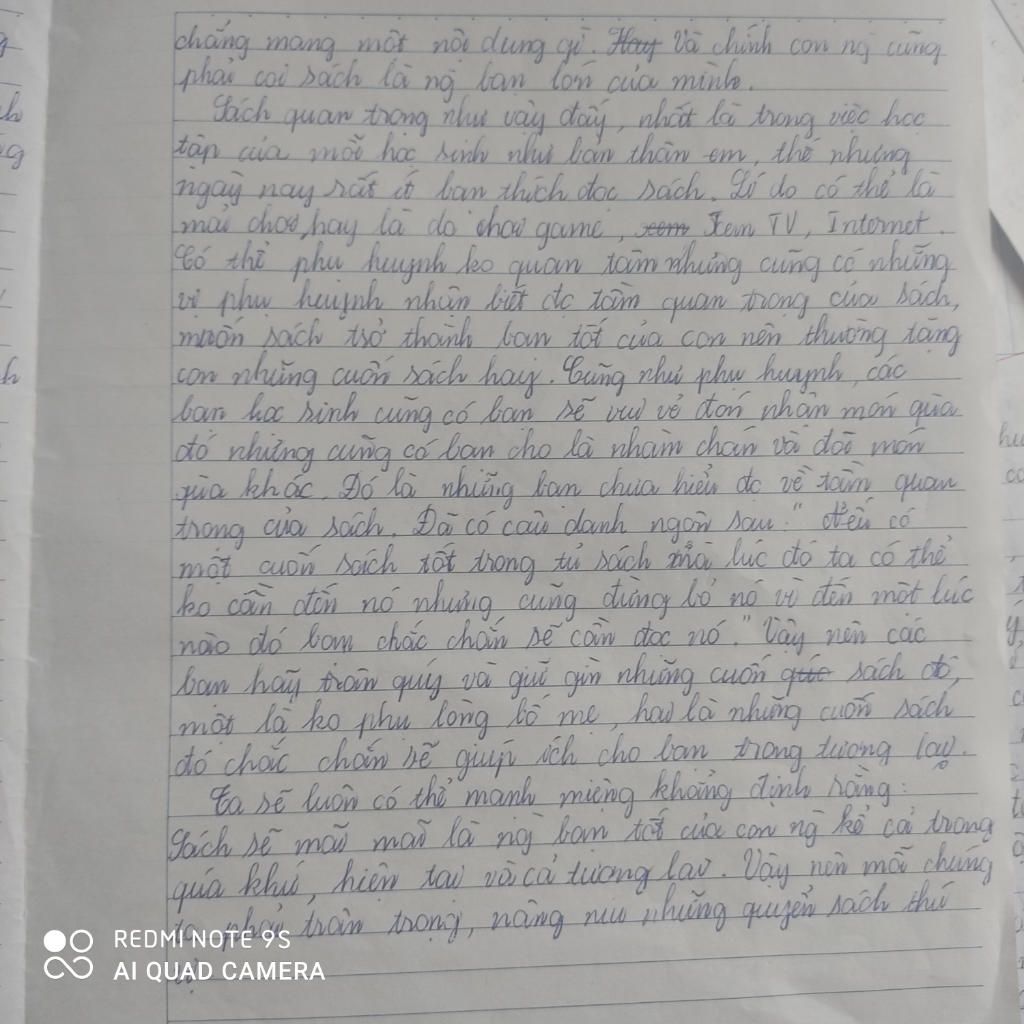 chẳng mang một nội dung gì. Hay Và chính con ng cũng
phải coi sách là ng bạn lớn của mình.
Sách quan trọng như vậy đấy, nhất là trong việc học
tập của mỗi học sinh như bản thân em, thế nhưng
ngày nay rất ít bạn thích đọc sách. Lí do có thể là
mải chơi, hay là do chơi game, xem Xem TV, Internet.
Có thể phụ huynh ko quan tâm nhưng cũng có những
vị phụ huynh nhận biết đc tầm quan trọng của sách,
muốn sách trở thành bạn tốt của con nên thường tặng
con những cuốn sách hay. Cũng như phụ huynh, các
bạn học sinh cũng có bạn sẽ vui vẻ đón nhận món quà
đó nhưng cũng có bạn cho là nhàm chán và đòi món
quà khác. Đó là những bạn chưa hiểu đc về tầm quan
trọng của sách. Đã có câu danh ngôn sau: "Nếu có
một cuốn sách tốt trong tủ sách mà lúc đó ta có thể
ko cần đến nó nhưng cũng đừng bỏ nó vì đến một lúc
nào đó bạn chắc chắn sẽ cần đọc nó." Vậy nên các
bạn hãy trân quý và giữ gìn những cuốn sách đó,
một là ko phụ lòng bố mẹ, hai là những cuốn sách
đó chắc chắn sẽ giúp ích cho bạn trong tương lai.
Ta sẽ luôn có thể mạnh miệng khẳng định rằng:
Sách sẽ mãi mãi là ng bạn tốt của con ng kể cả trong
quá khứ, hiện tại và cả tương lai. Vậy nên mỗi chúng
ta phải trân trọng, nâng niu những quyển sách thú
vị.
REDMI NOTE 9S
AI QUAD CAMERA